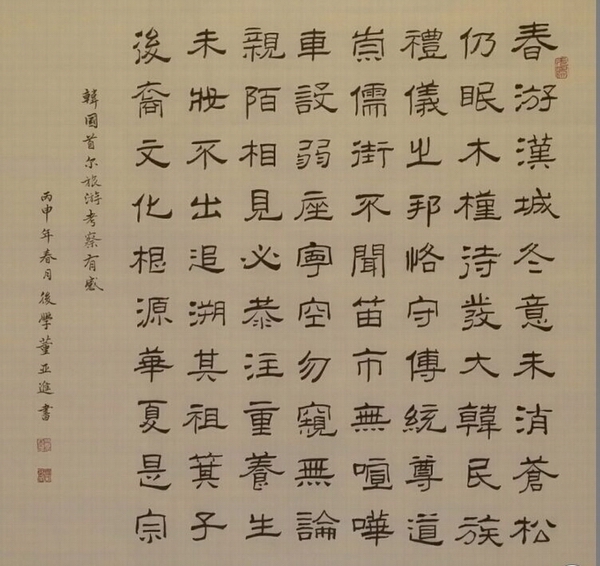 春游漢城冬意未消蒼松
仍眠木槿待發大韓民族
禮儀之邦恪守傳統尊道
崇儒街不聞笛市無喧嘩
車設弱座寧空勿窺無論
親陌相見必恭注重養生
未妝不出追溯其祖箕子
後裔文化根源華夏是宗
韓國首尔旅游考察有感
丙申年春月後學董亞進書